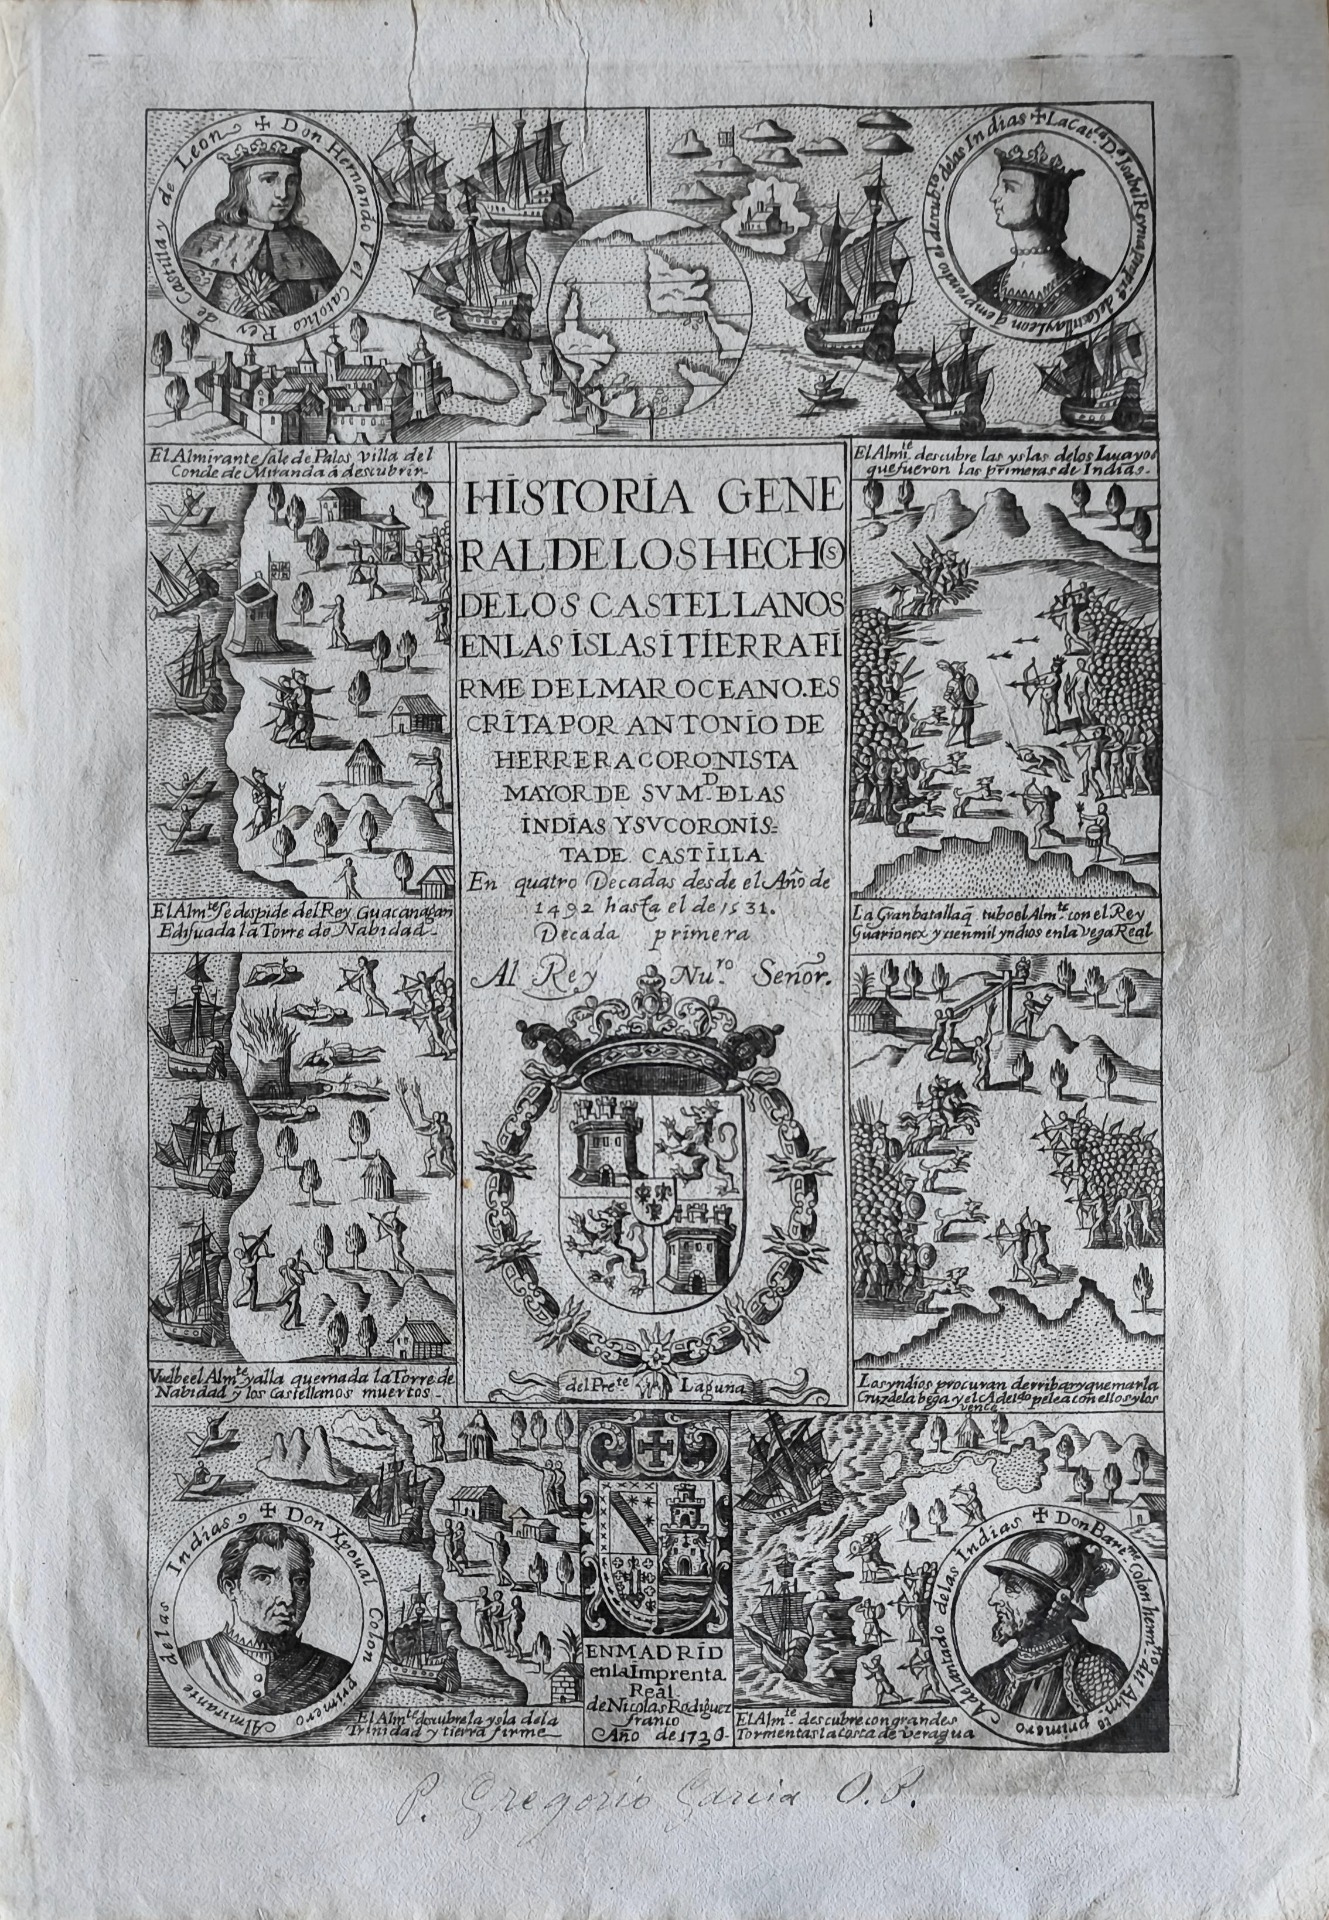 ✠ Don Hernando V el Catolico Rey de Castilla y de Leon
✠ La Cat.ca D.a Isabel Reyna
El Almirante sale de Palos, villa del
Conde de Miranda á descubrir
El Almi.te descubre las yslas de los Lucayos
que fueron las primeras de Indias.
HISTORIA GENE
RAL DE LOS HECHOS
DE LOS CASTELLANOS
EN LAS ISLAS I TIERRA FI
RME DEL MAR OCEANO. ES
CRITA POR ANTONIO DE
HERRERA CORONISTA
MAYOR DE SV M.D D LAS
INDIAS Y SV CORONIS=
TA DE CASTILLA
En quatro Decadas desde el Año de
1492 hasta el de 1531.
Decada primera
Al Rey Nu.ro Señor.
El Alm.te se despide del Rey Guacanagari
Edificada la Torre de Nabidad
La Gran batalla q̃ tubo el Alm.te con el Rey
Guarionex y cien mil yndios en la Vega Real
Vuelbe el Alm.te y alla quemada la Torre de
Nabidad y los Castellanos muertos
Los yndios procuran derribar y quemar la
Cruz de la bega y el Adel.do pelea con ellos y los
vence
del Pre.te Laguna
✠ Don Xpoual Colon primero Almirante delas Indias
El Alm.te descubre la ysla de la
Trinidad y tierra firme
EN MADRID
en la Imprenta
Real
de Nicolas Rodiguez
franco
Año de 1730
El Alm.te descubre con grandes
Tormentas la costa de Veragua
✠ Don Bar.me Colon herm.no del Alm.te primero Adelantado delas Indias
P. Gregorio Garcia O.P.